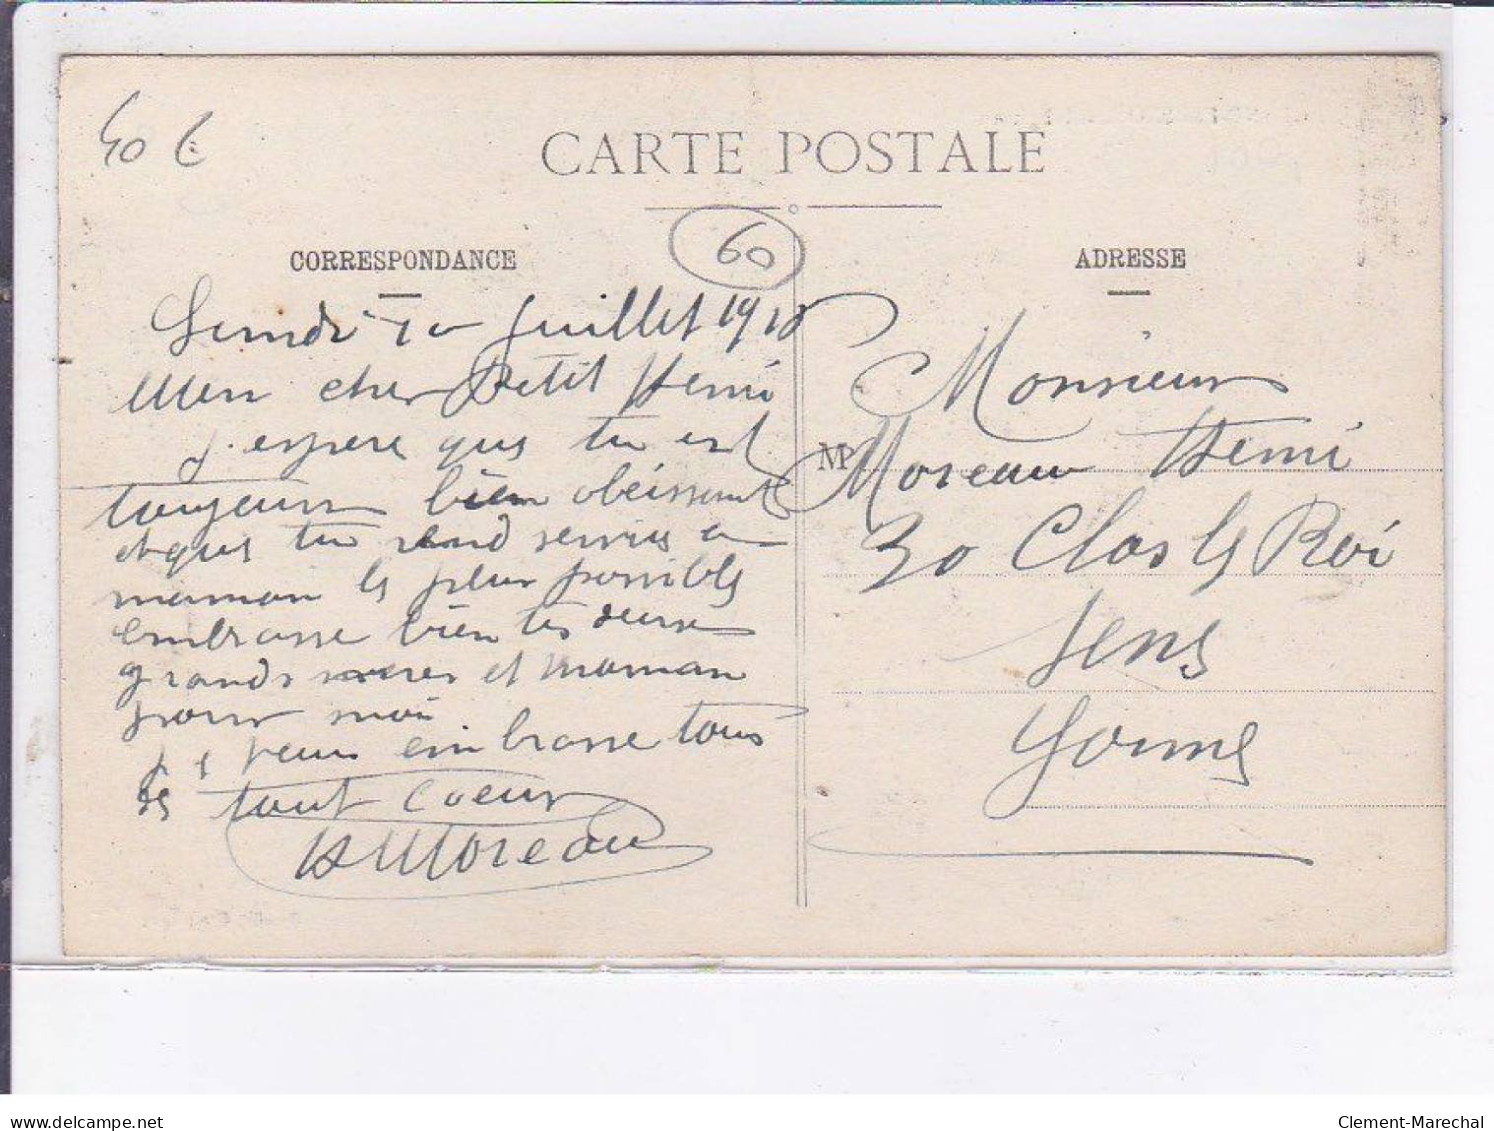 40 €
CARTE POSTALE
60
CORRESPONDANCE
ADRESSE
Lundi 10 Juillet 1910
Mon cher Petit Henri
j'espere que tu est
toujours bien obeissant
et que tu rend servis a
maman le plus possible
embrasse bien tes deux
grands meres et maman
pour moi
je veux embrasse tous
de tout coeur
H Moreau
Monsieur
M
Moreau Henri
30 Clos le Roi
Sens
Yonne
delcampe.net
Clement-Marechal